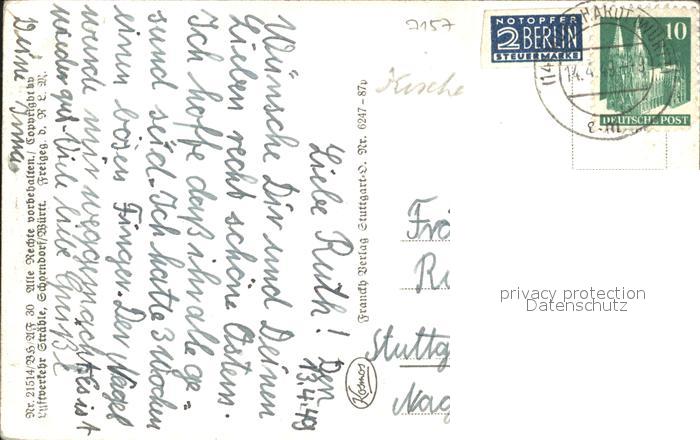 Liebe Ruth! Den
13.4.49
Wünsche Dir und Deinen
Lieben recht schöne Ostern.
Ich hoffe daß ihr alle ge
sund seid. Ich hatte 3 Wochen
einen bösen Finger. Der Nagel
wurde mir weggemacht. Es ist
wieder gut. Viele liebe Grüße
Deine Irma
Nr. 21514/Bh/AF 30 Alle Rechte vorbehalten / Copyright by
Luftverkehr Strähle, Schorndorf/Württ. Freigeg. d. R. L. M.
Franckh Verlag Stuttgart-O. Nr. 6247-87p
Kosmos
7157
Kirche
NOTOPFER
2 BERLIN
STEUERMARKE
10
DEUTSCHE POST
(14
14.4.49
Frä
Ru
Stuttg
Nag
privacy protection
Datenschutz